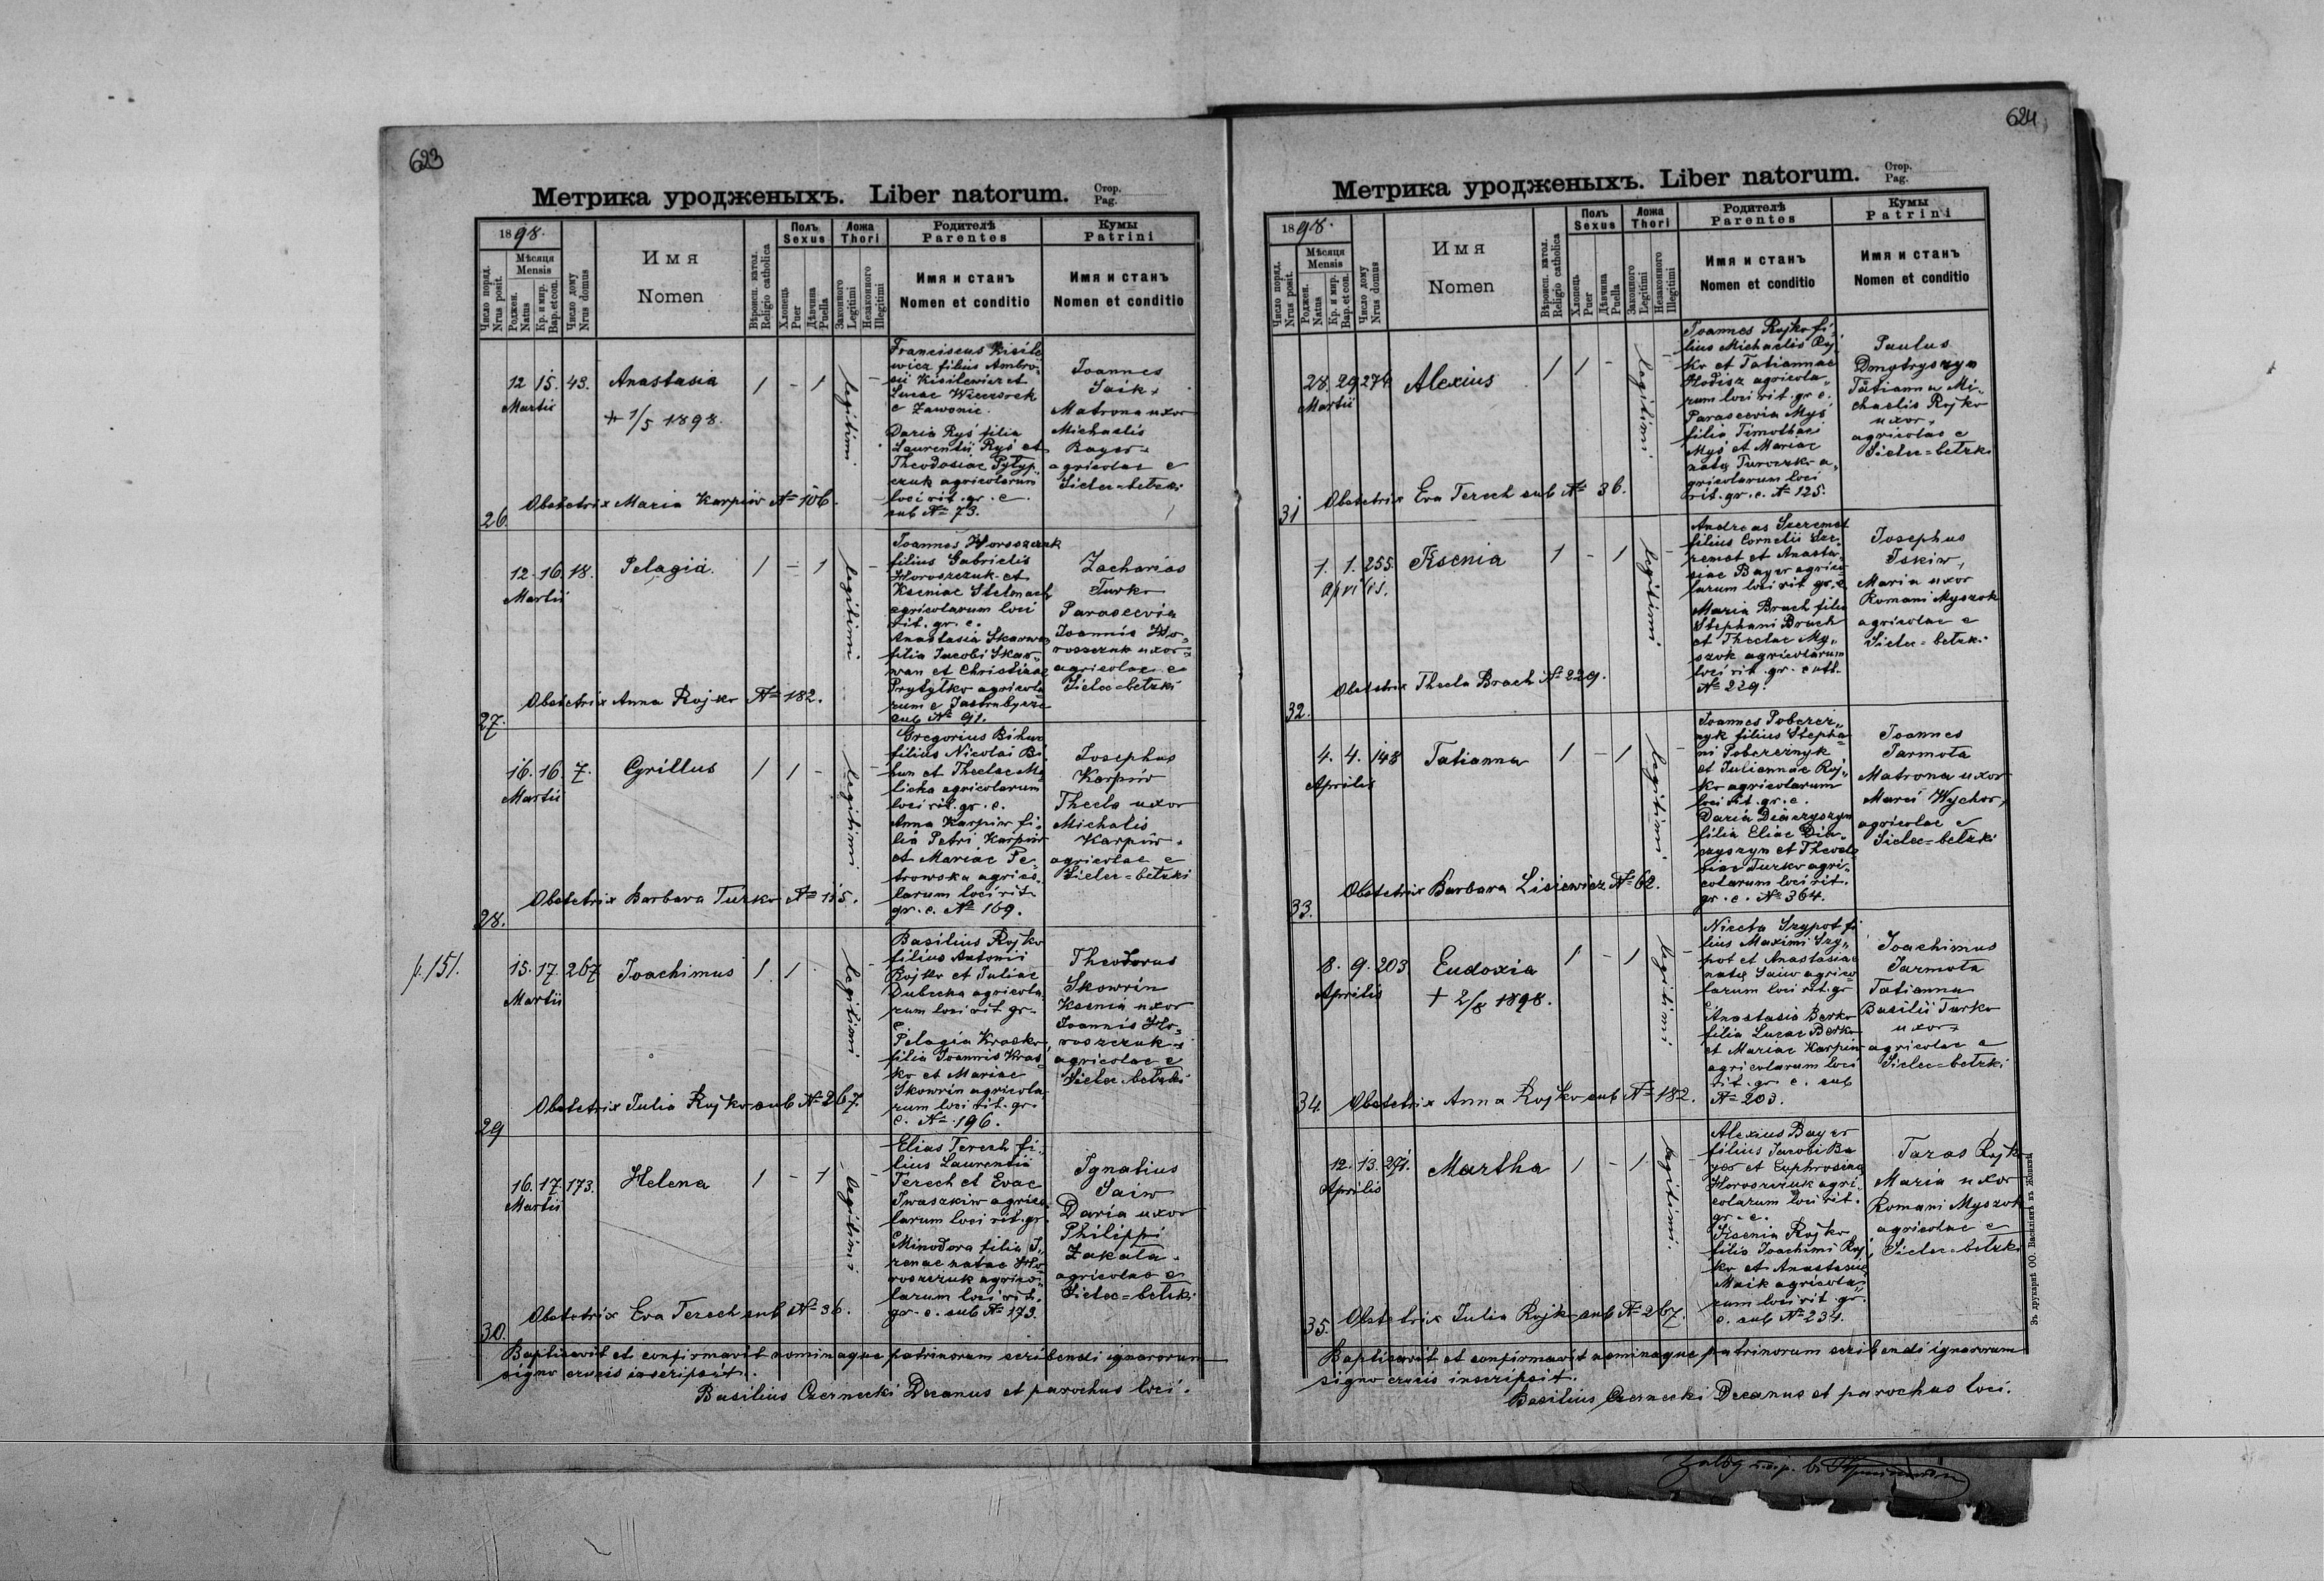 623
Метрика уродженыхъ. Liber natorum. Стор. Pag.
1898.
Число поряд. Nrus posit.
Мѣсяця Mensis
Роджен. Natus
Кр. и мир. Bap. et con.
Число дому Nrus domus
Имя
Nomen
Вѣроисп. катол. Religio catholica
Полъ Sexus
Хлопець Puer
Дѣвчина Puella
Ложа Thori
Законного Legitimi
Незаконного Illegitimi
Родителѣ
Parentes
Имя и станъ
Nomen et conditio
Кумы
Patrini
Имя и станъ
Nomen et conditio
26.
12 15. 43. Anastasia 1 - 1 legitimi -
Martii
+ 1/5 1898.
Franciscus Kisile
wicz filius Ambro„
sii Kisilewicz et
Lucae Wieczorek
e Zawonie.
Daria Ryś filia
Laurentii Ryś et
Theodosiae Pylyp„
czuk agricolarum
loci rit. gr. c.
sub № 73.
Joannes
Saik,
Matrona uxor
Michaelis
Bayer
agricolae e
Sielec=bełzki
Obstetrix Maria Karpiw № 106.
27.
12. 16. 18. Pelagia. 1 - 1 legitimi -
Martii
Joannes Horoszczuk
filius Gabrielis
Horoszczuk et
Kseniae Stelmach
agricolarum loci
rit. gr. c.
Anastasia Skarwan
filia Jacobi Skar„
wan et Christinae
Prytyłko agricola
rum e Jastrubycze
sub № 91.
Zacharias
Turko
Parascevia
Joannis Ho„
roszczuk uxor
agricolae e
Sielec=bełzki
Obstetrix Anna Rojko № 182.
28.
16. 16. 7. Cyrillus 1 1 - legitimi -
Martii
Gregorius Bihun
filius Nicolai Bi„
hun et Theclae Me
licha agricolarum
loci rit. gr. c.
Anna Karpiw fi„
lia Petri Karpiw
et Mariae Pe„
trowska agrico„
larum loci rit
gr. c. № 169.
Josephus
Karpiw
Thecla uxor
Michalis
Karpiw.
agricolae e
Sielec=bełzki
Obstetrix Barbara Turko № 115.
29
p. 151.
15. 17. 267 Joachimus 1 1 - legitimi
Martii
Basilius Rojko
filius Antonii
Rojko et Juliae
Dubecka agricola
rum loci rit gr.
c.
Pelagia Krasko,
filia Joannis Kras„
ko et Mariae
Skowrin agricola
rum loci rit. gr.
c. № 196.
Theodorus
Skowrin
Ksenia uxor
Joannis Ho„
roszczuk
agricolae e
Sielec-bełzki
Obstetrix Julia Rojko sub № 267.
30.
16. 17. 173. Helena 1 - 1 legitimi -
Martii
Elias Terech fi„
lius Laurentii
Terech et Evae
Iwaszkiw agrico
larum loci rit. gr.
c.
Minodora filia I„
renae natae Ho
roszczuk agrico„
larum loci rit.
gr. c. sub № 173.
Ignatius
Saiw
Daria uxor
Philippi
Zakala.
agricolae e
Sielec=bełzki
Obstetrix Eva Terech sub № 36.
Baptisavit et confirmavit nominaque patrinorum scribendi ignarorum
signo crucis inscripsit.
Basilius Czernecki Decanus et parochus loci.
624
Метрика уродженыхъ. Liber natorum. Стор. Pag.
1898.
Число поряд. Nrus posit.
Мѣсяця Mensis
Роджен. Natus
Кр. и мир. Bap. et con.
Число дому Nrus domus
Имя
Nomen
Вѣроисп. катол. Religio catholica
Полъ Sexus
Хлопець Puer
Дѣвчина Puella
Ложа Thori
Законного Legitimi
Незаконного Illegitimi
Родителѣ
Parentes
Имя и станъ
Nomen et conditio
Кумы
Patrini
Имя и станъ
Nomen et conditio
31
28. 29 274 Alexius 1 1 - legitimi -
Martii
Joannes Rojko fi„
lius Michaelis Roj„
ko et Tatiannae
Hodisz agricola„
rum loci rit. gr. c.
Parascevia Myś
filia Timothaei
Myś et Mariae
natę Turoczko a„
gricolarum loci
rit. gr. c. № 125.
Paulus
Dmytryszyn
Tatianna Mi„
chaelis Rojko
uxor,
agricolae e
Sielec-bełzki
Obstetrix Eva Terech sub № 36.
32.
1. 1. 255. Ksenia 1 - 1 legitimi
Aprilis.
Andreas Szeremet
filius Cornelii Sze„
remet et Anasta„
siae Bayer agrico„
larum loci rit. gr. c.
Maria Brach filia
Stephani Brach
et Theclae My„
szok agricolarum
loci rit. gr. cath.
№ 229.
Josephus
Iskiw,
Maria uxor
Romani Myszok
agricolae e
Sielec=bełzki
Obstetrix Thecla Brach № 229.
33.
4. 4. 148 Tatianna 1 - 1 legitimi -
Aprilis
Joannes Poberez„
nyk filius Stepha„
ni Pobereznyk
et Juliannae Roj„
ko agricolarum
loci rit. gr. c.
Daria Diaczyszyn
filia Eliae Dia„
czyszyn et Theodo
siae Turko agri„
colarum loci rit.
gr. c. № 364.
Joannes
Jarmoła
Matrona uxor
Marci Wychor,
agricolae e
Sielec=bełzki
Obstetrix Barbara Lisiewicz № 62.
34
8. 9. 203 Eudoxia 1 - 1 legitimi -
Aprilis
+ 2/8 1898.
Niceta Szypot fi
lius Maximi Szy„
pot et Anastasiae
natę Saiw agrico
larum loci rit. gr
Anastasia Berko
filia Lucae Berko
et Mariae Karpiw
agricolarum loci
rit. gr. c. sub
№ 203.
Joachimus
Jarmoła
Tatianna
Basilii Turko
uxor
agricolae e
Sielec=bełzki
Obstetrix Anna Rojko sub № 182.
35.
12. 13. 291. Martha 1 - 1 legitimi. -
Aprilis
Alexius Bayer
filius Jacobi Ba„
yer et Euphrosinae
Horoszczuk agri„
colarum loci rit.
gr. c.
Ksenia Rojko
filia Joachimi Roj„
ko et Anastasiae
Maik agricola„
rum loci rit. gr.
c. sub № 234.
Taras Rojko
Maria uxor
Romani Myszok
agricolae e
Sielec=bełzki
Obstetrix Julia Rojko sub № 267.
Baptisavit et confirmavit nominaque patrinorum scribendi ignarorum
signo crucis inscripsit.
Basilius Czernecki Decanus et parochus loci.
Зъ друкарнѣ ОО. Василіянъ въ Жовквѣ